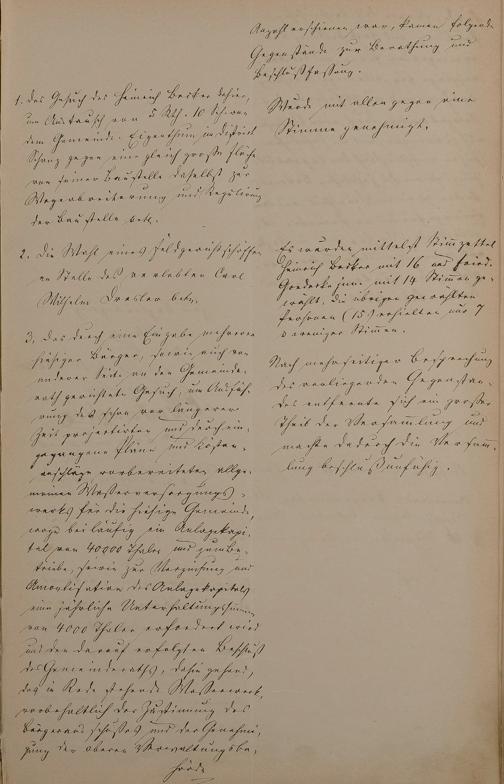 Anzahl erschienen war, kamen folgende
Gegenstände zur Berathung und
Beschlußfassung.
1. Das Gesuch des Heinrich Becker dahier,
um Austausch von 5 Rth. 10 Sch. von
dem Gemeinde-Eigenthum im District
Schanz gegen eine gleich große Fläche
von seiner Baustelle daselbst zur
Wegerbreiterung und Regulirung
der Baustelle betr.
Wurde mit allen gegen eine
Stimme genehmigt.
2. Die Wahl eines Feldgerichtsschöffen
an Stelle des verlebten Carl
Wilhelm Dresler betr.
Es wurden mittelst Stimmzettel
Heinrich Becker mit 16 und Fried.
mit 14 Stimmen ge-
wählt, die übrigen gewählten
Personen (15) erhielten nur 7
u weniger Stimmen.
3. Das durch eine Eingabe mehrerer
hiesiger Bürger, sowie auch von
anderer Seite an den Gemeinde-
rath gerichtete Gesuch, um Ausfüh-
rung des schon vor längerer
Zeit projectirten und durch ein-
gegangene Pläne und Kosten-
anschläge vorbereiteten allge-
meinen Wasserversorgungs-
werks für die hiesige Gemeinde,
wozu beiläufig ein Anlagekapi-
tal von 40000 Thaler und zum Be-
triebe, sowie zur Verzinsung und
Amortisation des Anlagekapitals
eine jährliche Unterhaltungssumme
von 4000 Thaler erfordert wird
und den darauf erfolgten Beschluß
des Gemeinderaths, dahin gehend,
das in Rede stehende Wasserwerk,
vorbehaltlich der Zustimmung des
Bürgerausschusses und der Genehmi-
gung der oberen Verwaltungsbe-
hörde
Nach mehrseitiger Besprechung
des vorliegenden Gegenstan-
des entfernte sich ein großer
Theil der Versammlung und
machte dadurch die Versamm-
lung beschlußunfähig.